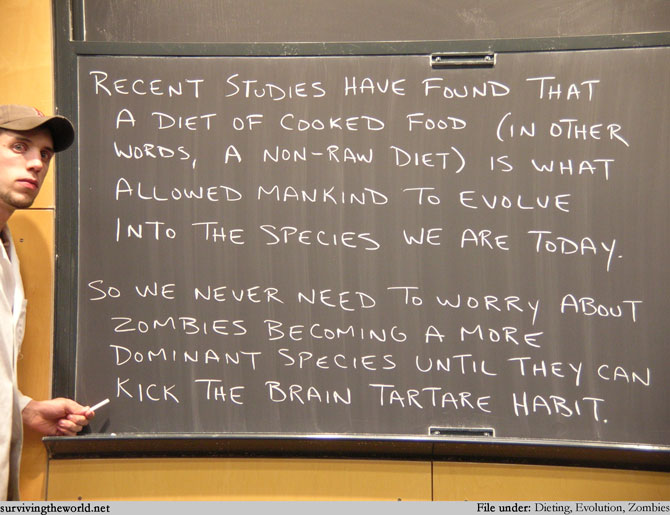 RECENT STUDIES HAVE FOUND THAT
A DIET OF COOKED FOOD (IN OTHER
WORDS, A NON-RAW DIET) IS WHAT
ALLOWED MANKIND TO EVOLVE
INTO THE SPECIES WE ARE TODAY.
SO WE NEVER NEED TO WORRY ABOUT
ZOMBIES BECOMING A MORE
DOMINANT SPECIES UNTIL THEY CAN
KICK THE BRAIN TARTARE HABIT.
survivingtheworld.net File under: Dieting, Evolution, Zombies